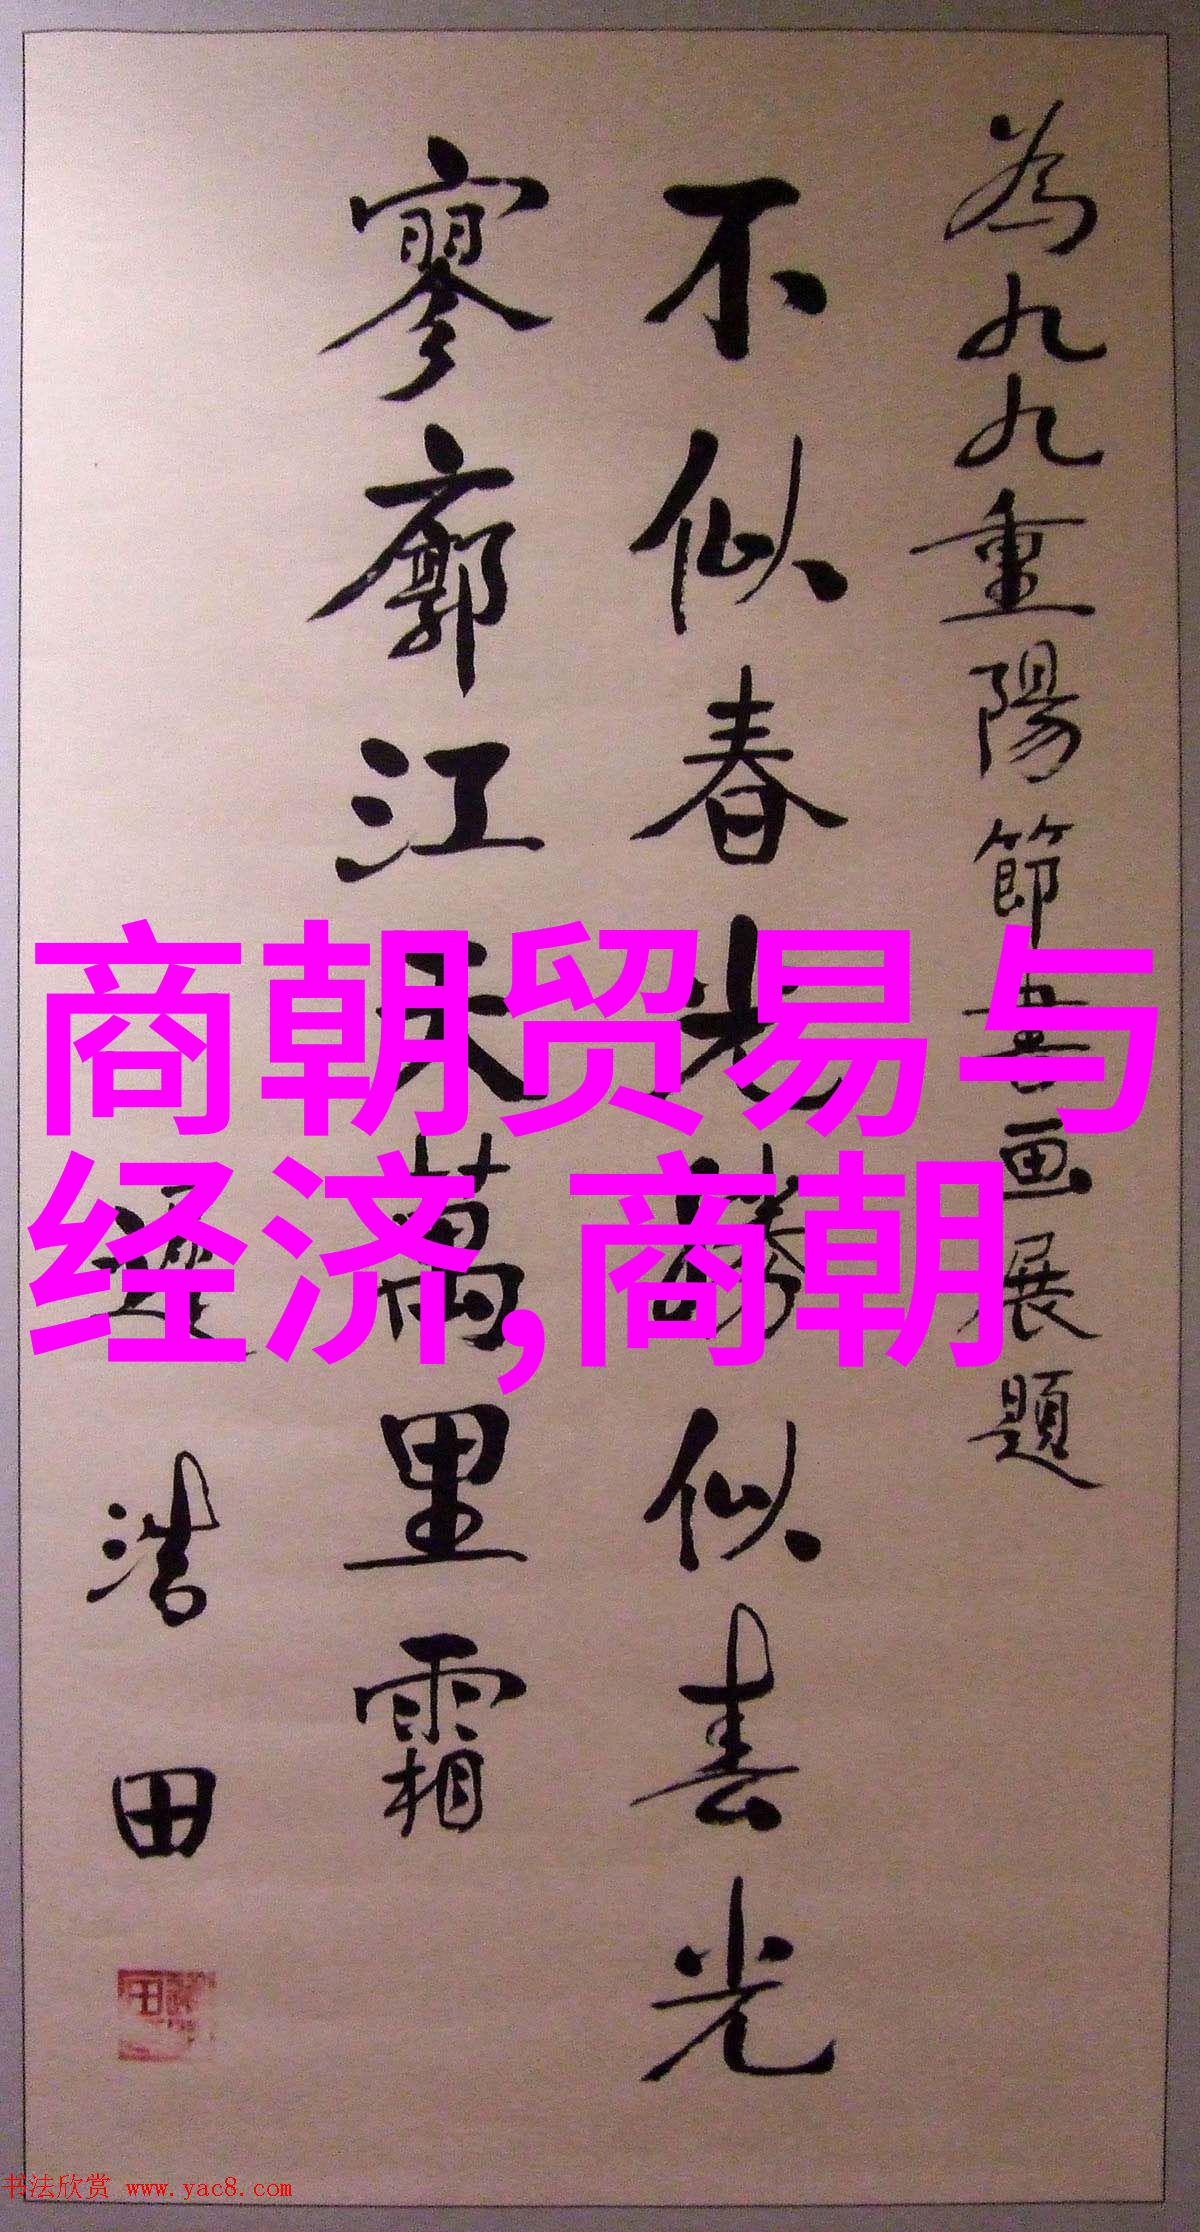 為九九重陽節書画展題
不似春光勝似春光
寥廓江天萬里霜
浩田
商朝贸易与
经济,商朝
书法欣赏 www.yac8.com